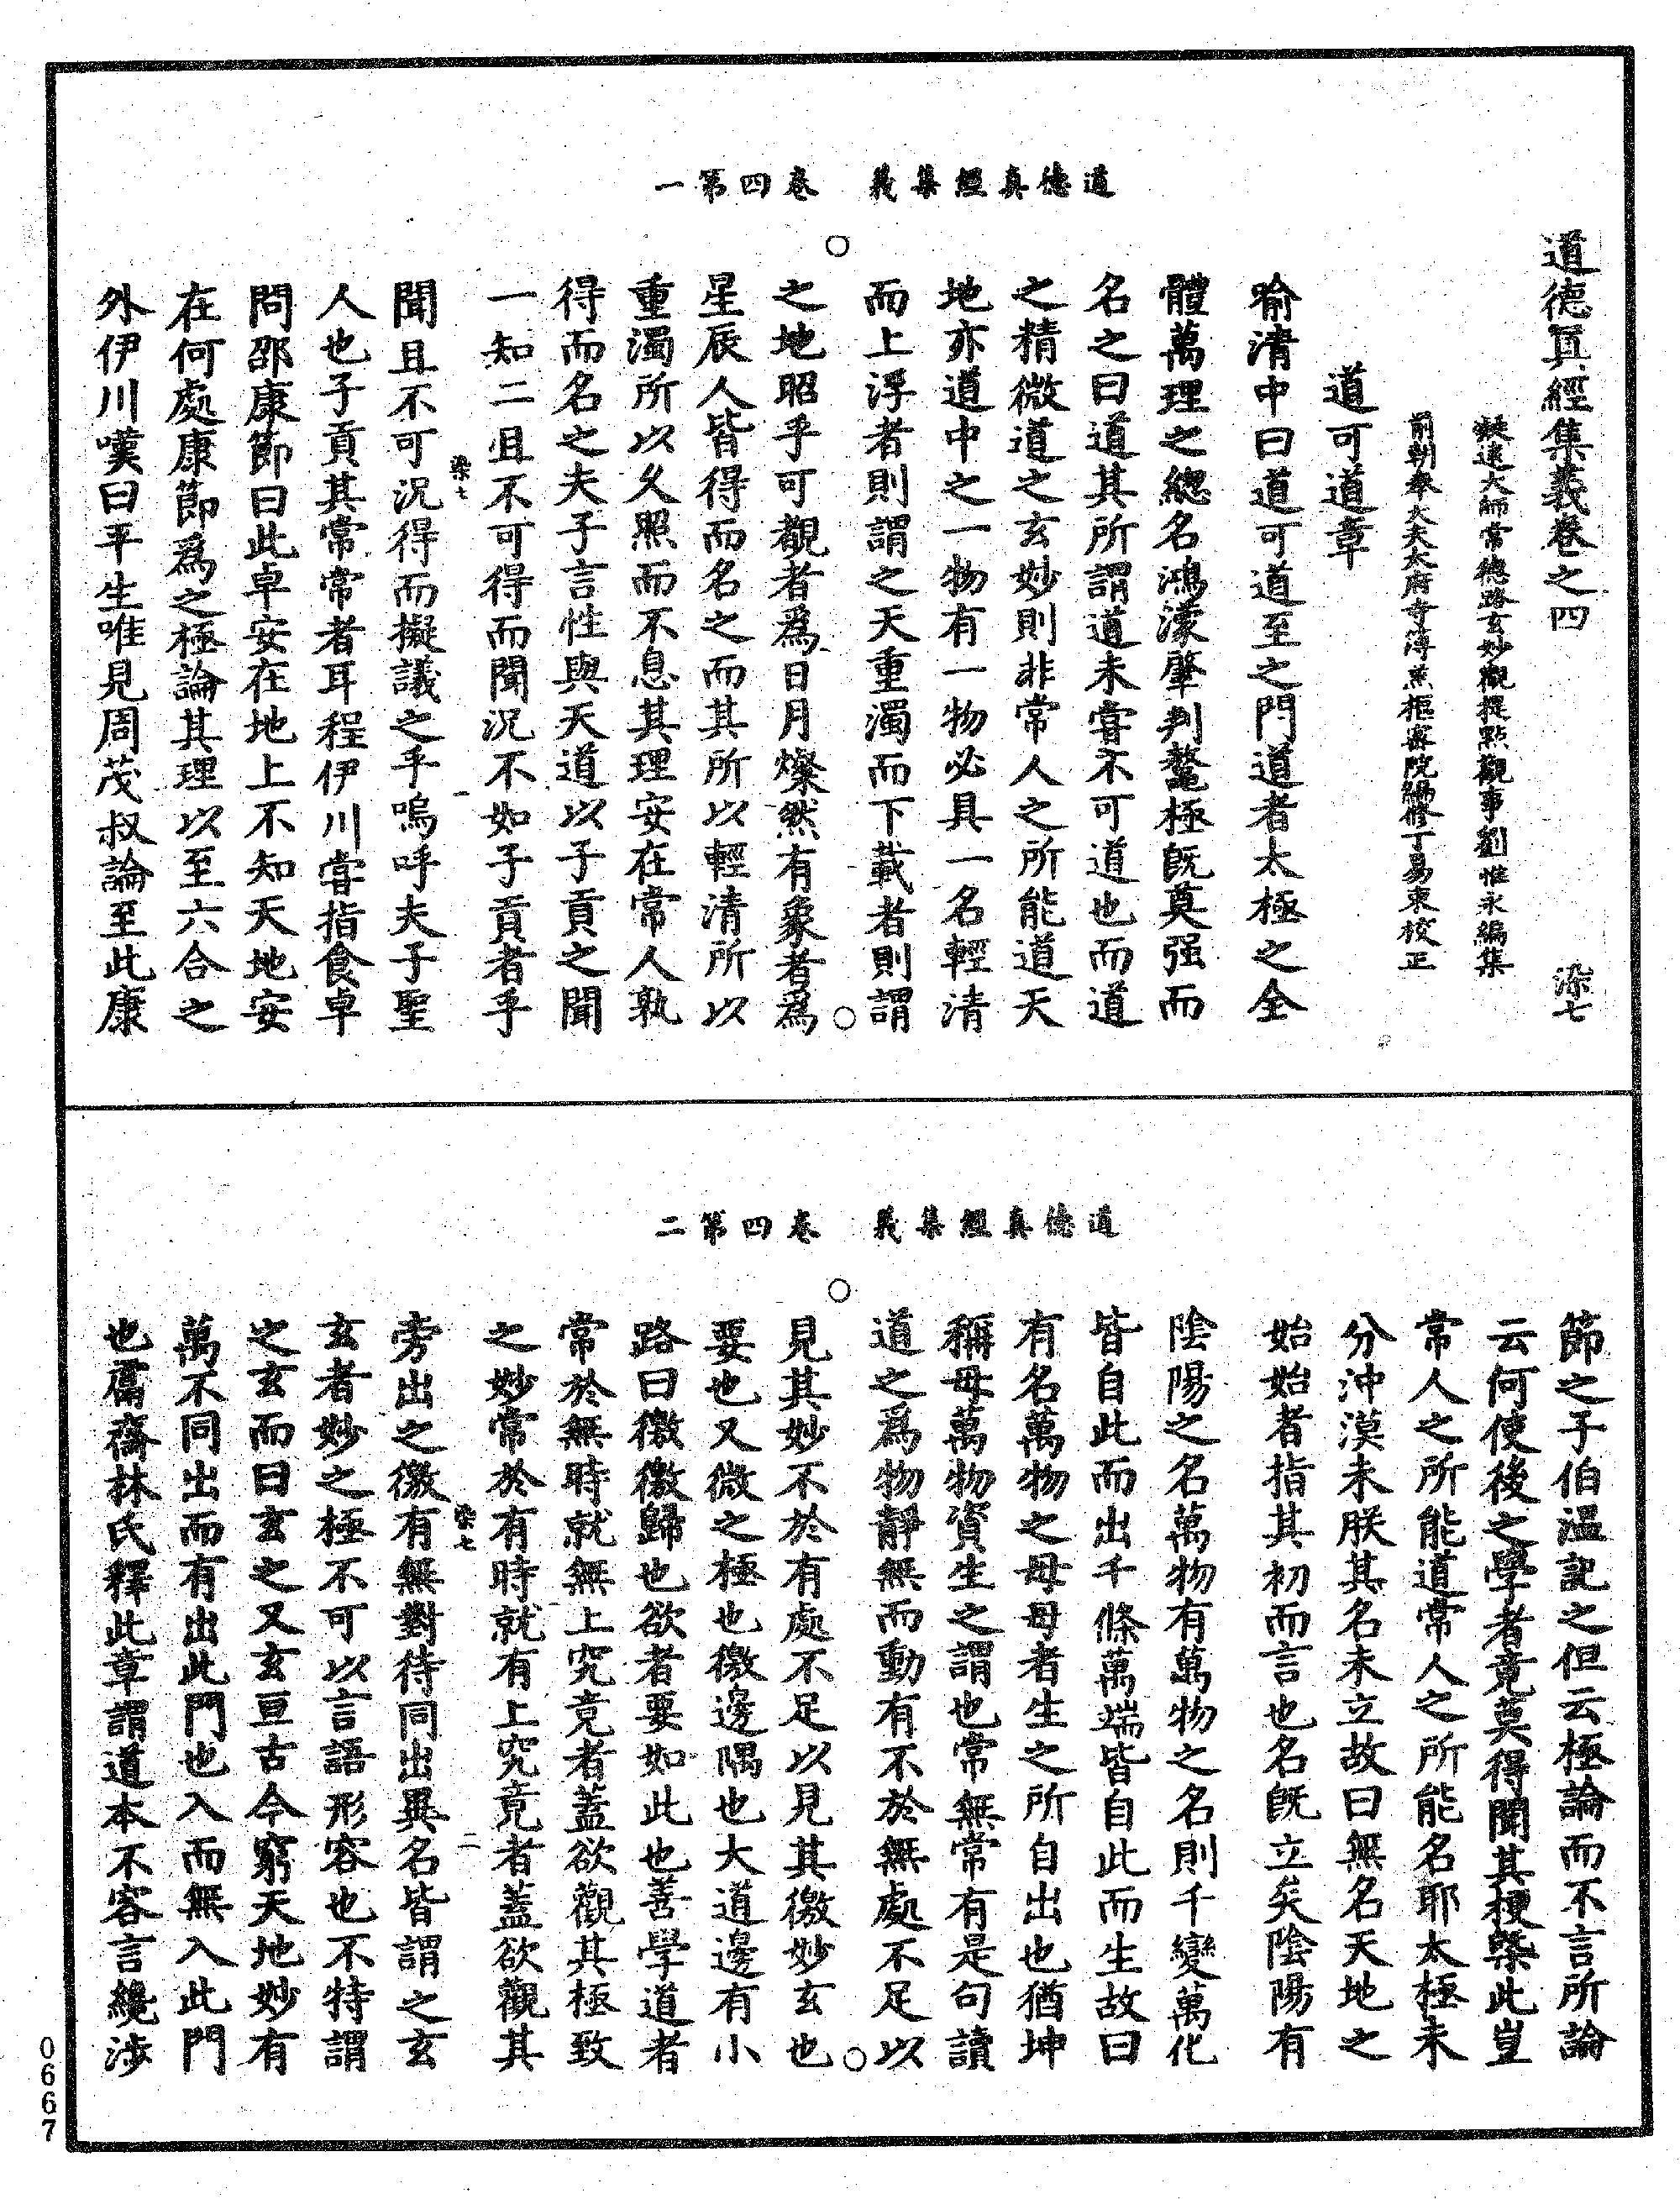 道德真經集義　卷四第一
道德眞經集義卷之四　染七
凝遠大師常德路玄妙觀提點觀事劉惟永編集
前朝奉大夫太府寺簿兼樞密院編修丁易東校正
道可道章
喻清中曰道可道至之門道者太極之全
體萬理之總名鴻濛肇判鼇極旣莫强而
名之曰道其所謂道未甞不可道也而道
之精微道之玄妙則非常人之所能道天
地亦道中之一物有一物必具一名輕清
而上浮者則謂之天重濁而下載者則謂
之地昭乎可觀者爲日月燦然有象者爲
星辰人皆得而名之而其所以輕清所以
重濁所以久照而不息其理安在常人孰
得而名之夫子言性與天道以子貢之聞
一知二且不可得而聞況不如子貢者乎
染七　一
聞且不可況得而擬議之乎嗚呼夫子聖
人也子貢其常常者耳程伊川甞指食卓
問邵康節曰此卓安在地上不知天地安
在何處康節爲之極論其理以至六合之
外伊川嘆曰平生唯見周茂叔論至此康
道德真經集義　卷四第二
節之子伯溫記之但云極論而不言所論
云何使後之學者竟莫得聞其梗槩此豈
常人之所能道常人之所能名耶太極未
分沖漠未朕其名未立故曰無名天地之
始始者指其初而言也名旣立矣陰陽有
陰陽之名萬物有萬物之名則千變萬化
皆自此而出千條萬端皆自此而生故曰
有名萬物之母母者生之所自出也猶坤
稱母萬物資生之謂也常無常有是句讀
道之爲物靜無而動有不於無處不足以
見其妙不於有處不足以見其徼妙玄也
要也又微之極也徼邊隅也大道邊有小
路曰徼徼歸也欲者要如此也善學道者
常於無時就無上究竟者蓋欲觀其極致
之妙常於有時就有上究竟者蓋欲觀其
染七　二
旁出之徼有無對待同出異名皆謂之玄
玄者妙之極不可以言語形容也不特謂
之玄而曰玄之又玄亘古今窮天地妙有
萬不同出而有出此門也入而無入此門
也鬳齋林氏釋此章謂道本不容言纔涉
0667